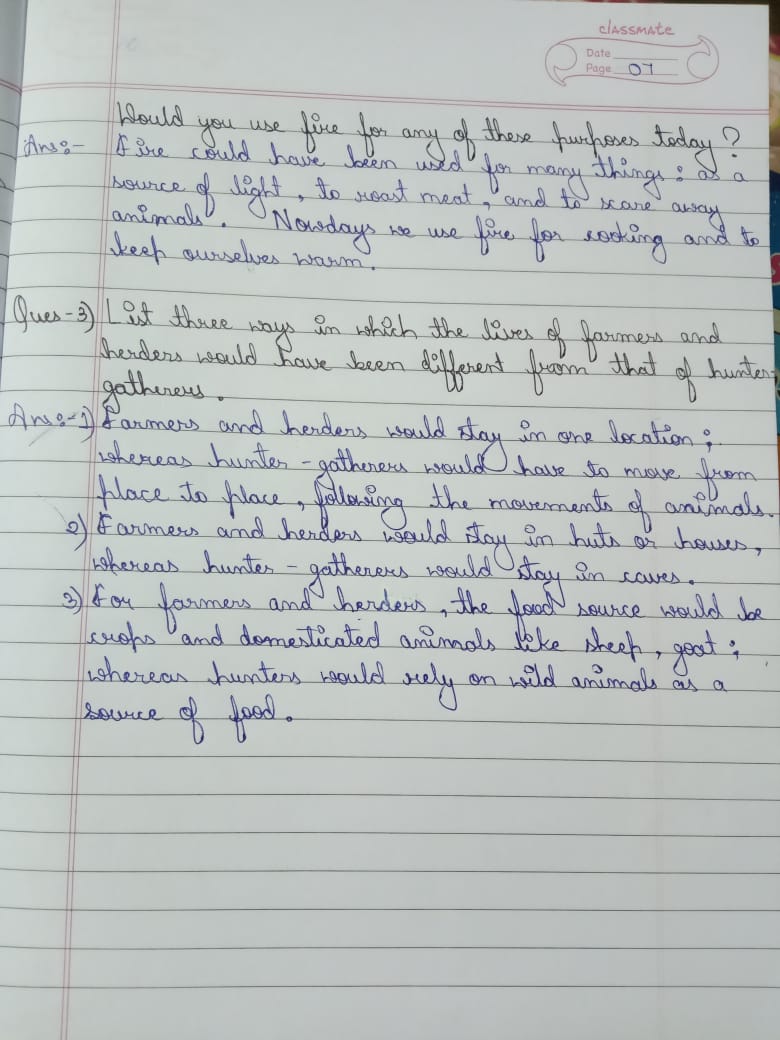 classmate
Date
Page 07
Would you use fire for any of these purposes today?
Ans:- Fire could have been used for many things: as a
source of light, to roast meat, and to scare away
animals. Nowdays we use fire for cooking and to
keep ourselves warm.
Ques-3) List three ways in which the lives of farmers and
herders would have been different from that of hunter-
gatherers.
Ans:-1) Farmers and herders would stay in one location;
whereas hunter-gatherers would have to move from
place to place, following the movements of animals.
2) Farmers and herders would stay in huts or houses,
whereas hunter-gatherers would stay in caves.
3) For farmers and herders, the food source would be
crops and domesticated animals like sheep, goat;
whereas hunters would rely on wild animals as a
source of food.